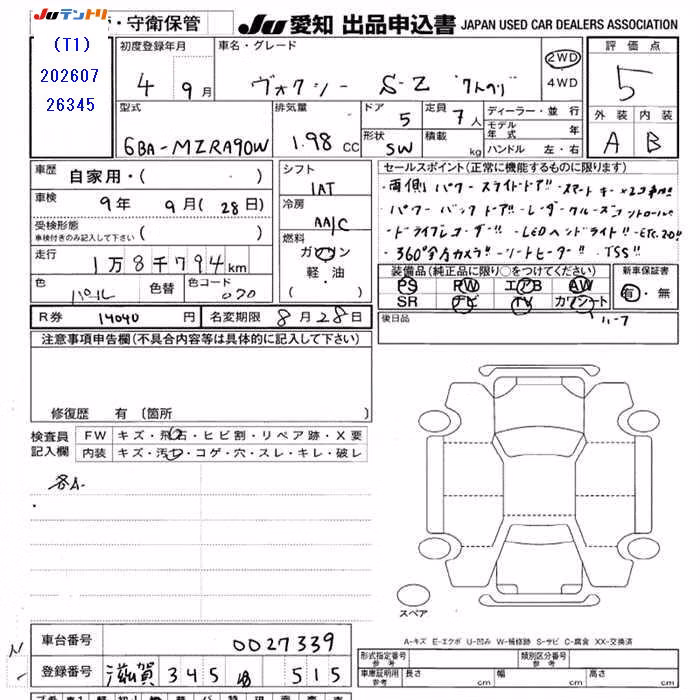 JUテントリ
・守衛保管
JU 愛知 出品申込書 JAPAN USED CAR DEALERS ASSOCIATION
(T1)
202607
26345
初度登録年月
4 9月
車名・グレード
ヴォクシー S-Z
2WD
4WD
評価点
5
外装 内装
A B
型式
6BA-MZRA90W
排気量
1.98 CC
ドア
5
定員
7人
形状
SW
積載
kg
ディーラー・並行
モデル年式 年
ハンドル 左・右
車歴
自家用・( )
車検
9年 9月(28日)
受検形態
車検付きのみ記入して下さい ( )
走行
1万8千794km
色
パール
色替
色コード
070
シフト
IAT
冷房
AA/C
燃料
ガソリン
軽・油
( )
セールスポイント(正常に機能するものに限ります)
・両側パワースライドドア!!・スマートキー×2コ
・パワーバックドア!!・レーダークルーズコントロール
・ドライブレコーダー!!・LEDヘッドライト!!・ETC2.0!!
・360°全方カメラ!!・シートヒーター!!・TSS!!
装備品(純正品に限り○をつけてください)
PS PW エアB AW
SR ナビ TV カワシート
新車保証書
有・無
後日品
R券 14040 円
名変期限 8月28日
注意事項申告欄(不具合内容等は具体的に記入して下さい)
修復歴 有(箇所
検査員記入欄
FW キズ・飛石・ヒビ割・リペア跡・X要
内装 キズ・汚れ・コゲ・穴・スレ・キレ・破レ
各A-
スペア
A-キズ E-エクボ U-凹み W-補修跡 S-サビ C-腐食 XX-交換済
車台番号
0027339
登録番号
滋賀 345 515
形式指定番号
参考
類別区分番号
参考
車庫証明用
参考
長さ cm
幅 cm
高さ cm